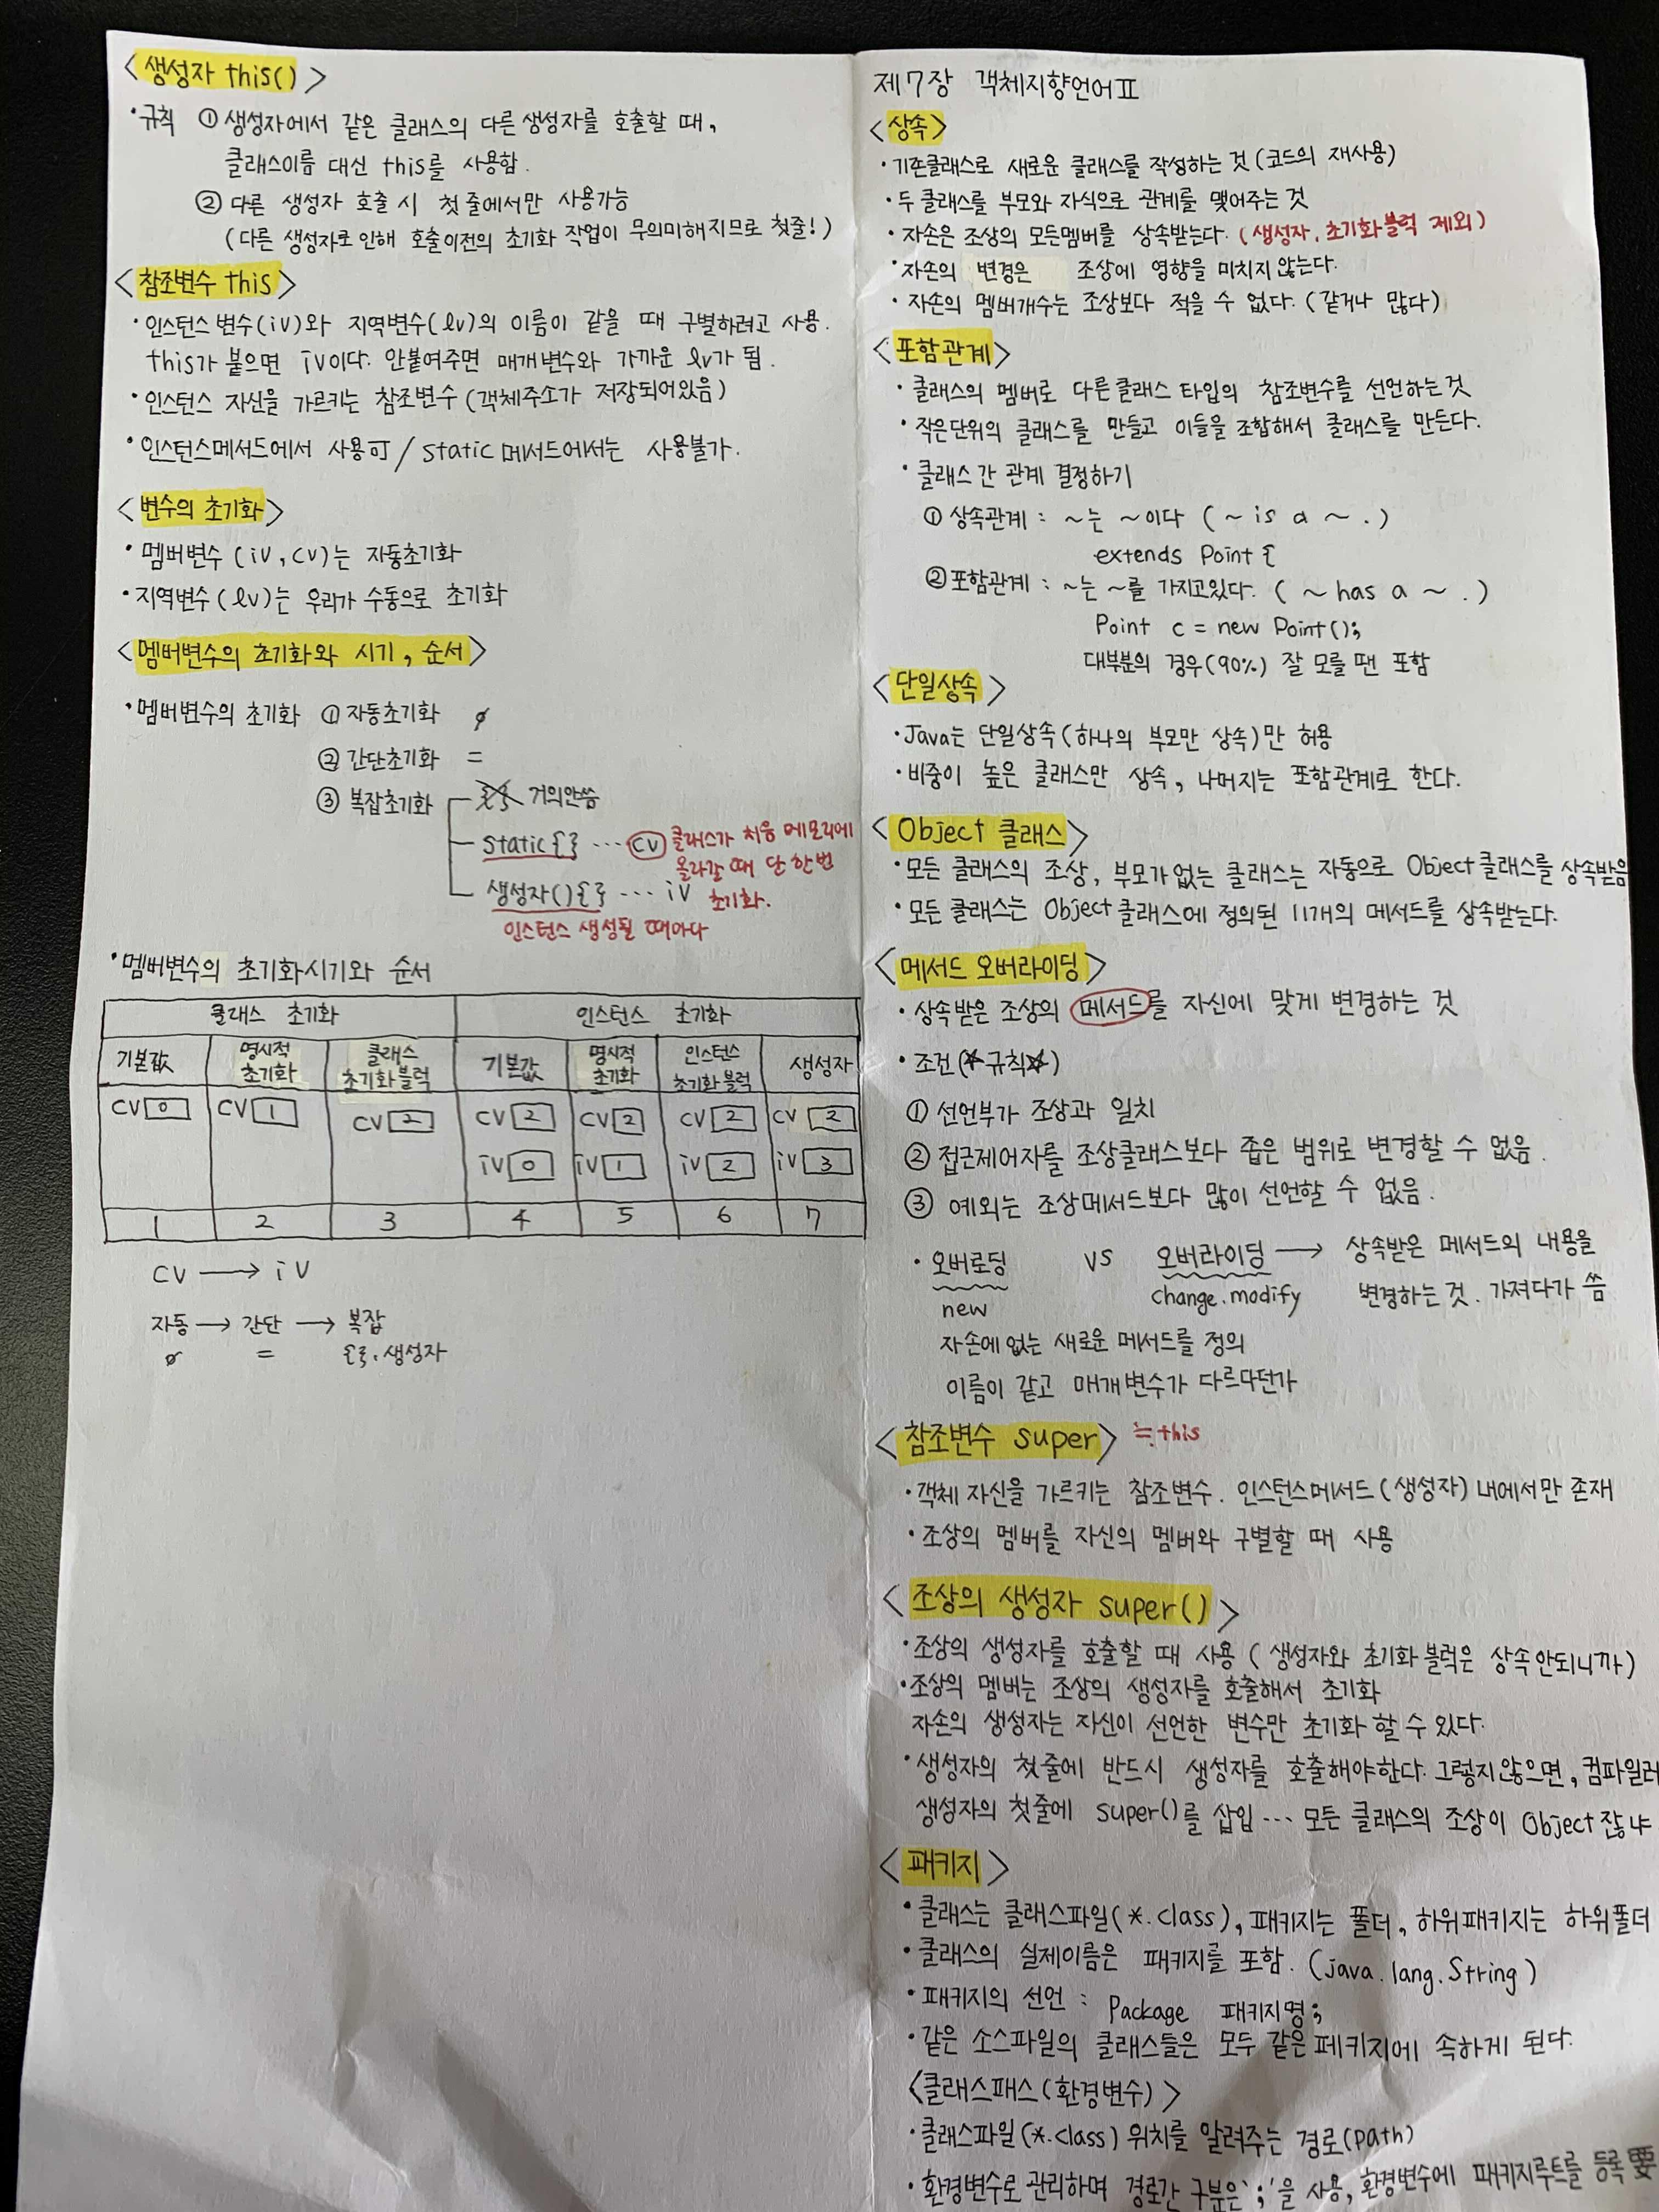 <생성자 this()>
•규칙 ① 생성자에서 같은 클래스의 다른 생성자를 호출할 때,
클래스이름 대신 this를 사용함.
② 다른 생성자 호출 시 첫 줄에서만 사용가능
(다른 생성자로 인해 호출이전의 초기화 작업이 무의미해지므로 첫줄!)
<참조변수 this>
•인스턴스 변수(iv)와 지역변수(lv)의 이름이 같을 때 구별하려고 사용.
this가 붙으면 iv이다. 안붙여주면 매개변수와 가까운 lv가 됨.
•인스턴스 자신을 가르키는 참조변수 (객체주소가 저장되어있음)
•인스턴스메서드에서 사용可 / static 메서드에서는 사용불가.
<변수의 초기화>
• 멤버변수 (iv, cv)는 자동초기화
•지역변수(lv)는 우리가 수동으로 초기화
<멤버변수의 초기화와 시기, 순서>
•멤버변수의 초기화 ① 자동초기화 0
② 간단초기화 =
③ 복잡초기화 {} 거의안씀
static{} … cv 클래스가 처음 메모리에
올라갈 때 단 한번
생성자(){} … iv 초기화.
인스턴스 생성될 때마다
•멤버변수의 초기화시기와 순서
클래스 초기화 인스턴스 초기화
기본값 명시적 초기화 클래스 초기화블럭 기본값 명시적 초기화 인스턴스 초기화블럭 생성자
cv 0 cv 1 cv 2 cv 2 cv 2 cv 2 cv 2
iv 0 iv 1 iv 2 iv 3
1 2 3 4 5 6 7
cv → iv
자동 → 간단 → 복잡
0 = {}, 생성자
제7장 객체지향언어Ⅱ
<상속>
•기존클래스로 새로운 클래스를 작성하는 것 (코드의 재사용)
•두 클래스를 부모와 자식으로 관계를 맺어주는 것
•자손은 조상의 모든멤버를 상속받는다. (생성자, 초기화블럭 제외)
•자손의 변경은 조상에 영향을 미치지 않는다.
•자손의 멤버개수는 조상보다 적을 수 없다. (같거나 많다)
<포함관계>
•클래스의 멤버로 다른클래스 타입의 참조변수를 선언하는 것
•작은단위의 클래스를 만들고 이들을 조합해서 클래스를 만든다.
•클래스 간 관계 결정하기
① 상속관계 : ~는 ~이다 (~ is a ~.)
extends Point {
② 포함관계 : ~는 ~를 가지고있다. (~ has a ~.)
Point c = new Point();
대부분의 경우(90%) 잘 모를 땐 포함
<단일상속>
•Java는 단일상속(하나의 부모만 상속)만 허용
•비중이 높은 클래스만 상속, 나머지는 포함관계로 한다.
<Object 클래스>
•모든 클래스의 조상, 부모가없는 클래스는 자동으로 Object클래스를 상속받음
•모든 클래스는 Object클래스에 정의된 11개의 메서드를 상속받는다.
<메서드 오버라이딩>
•상속받은 조상의 메서드를 자신에 맞게 변경하는 것
•조건(☆규칙☆)
① 선언부가 조상과 일치
② 접근제어자를 조상클래스보다 좁은 범위로 변경할 수 없음.
③ 예외는 조상메서드보다 많이 선언할 수 없음.
•오버로딩 vs 오버라이딩 → 상속받은 메서드의 내용을
new change.modify 변경하는 것. 가져다가 씀
자손에없는 새로운 메서드를 정의
이름이 같고 매개변수가 다르다던가
<참조변수 super> ≒this
•객체 자신을 가르키는 참조변수. 인스턴스메서드(생성자)내에서만 존재
•조상의 멤버를 자신의 멤버와 구별할 때 사용
<조상의 생성자 super()>
•조상의 생성자를 호출할 때 사용 (생성자와 초기화블럭은 상속안되니까)
•조상의 멤버는 조상의 생성자를 호출해서 초기화
자손의 생성자는 자신이 선언한 변수만 초기화 할 수 있다.
•생성자의 첫줄에 반드시 생성자를 호출해야한다. 그렇지않으면, 컴파일러
생성자의 첫줄에 super()를 삽입 … 모든 클래스의 조상이 Object잖냐
<패키지>
•클래스는 클래스파일(*.class), 패키지는 폴더, 하위패키지는 하위폴더
•클래스의 실제이름은 패키지를 포함. (java.lang.String)
•패키지의 선언 : Package 패키지명;
•같은 소스파일의 클래스들은 모두 같은페키지에 속하게 된다.
<클래스패스(환경변수)>
•클래스파일(*.class) 위치를 알려주는 경로(path)
•환경변수로 관리하며 경로간 구분은 ';'을 사용, 환경변수에 패키지루트를 등록要